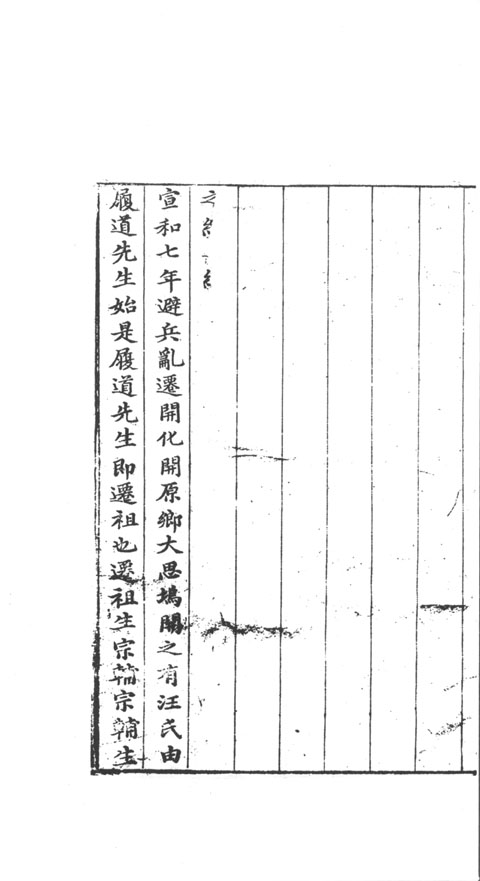 宣和七年避兵亂遷開化開原鄉大思塢開之有汪氏由
履道先生始是履道先生即遷祖也遷祖生宗輪宗輔生